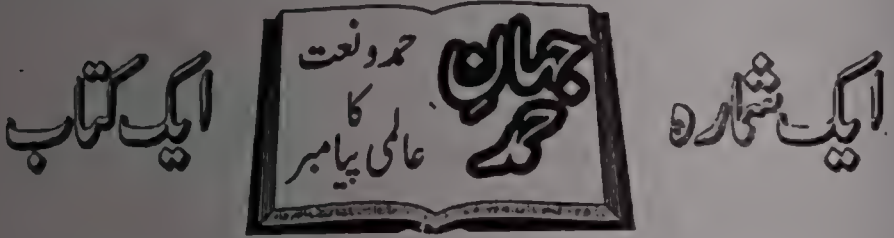 ایک شمارہ
جہانِ
حمد
حمد و نعت
کا
عالمی پیامبر
ایک کتاب